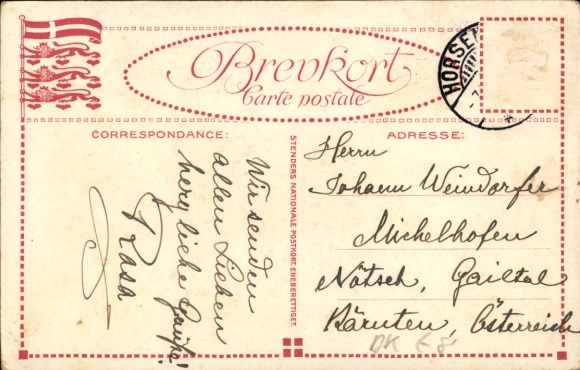 Brevkort
Carte postale
HORSE
CORRESPONDANCE:
ADRESSE:
Wir senden
allen Lieben
herzliche Grüße!
Rosa
STENDERS NATIONALE POSTKORT. ENEBERETTIGET.
Herrn
Johann Weindorfer
Michelhofen
Nötsch, Gailtal
Kärnten, Österreich
DK